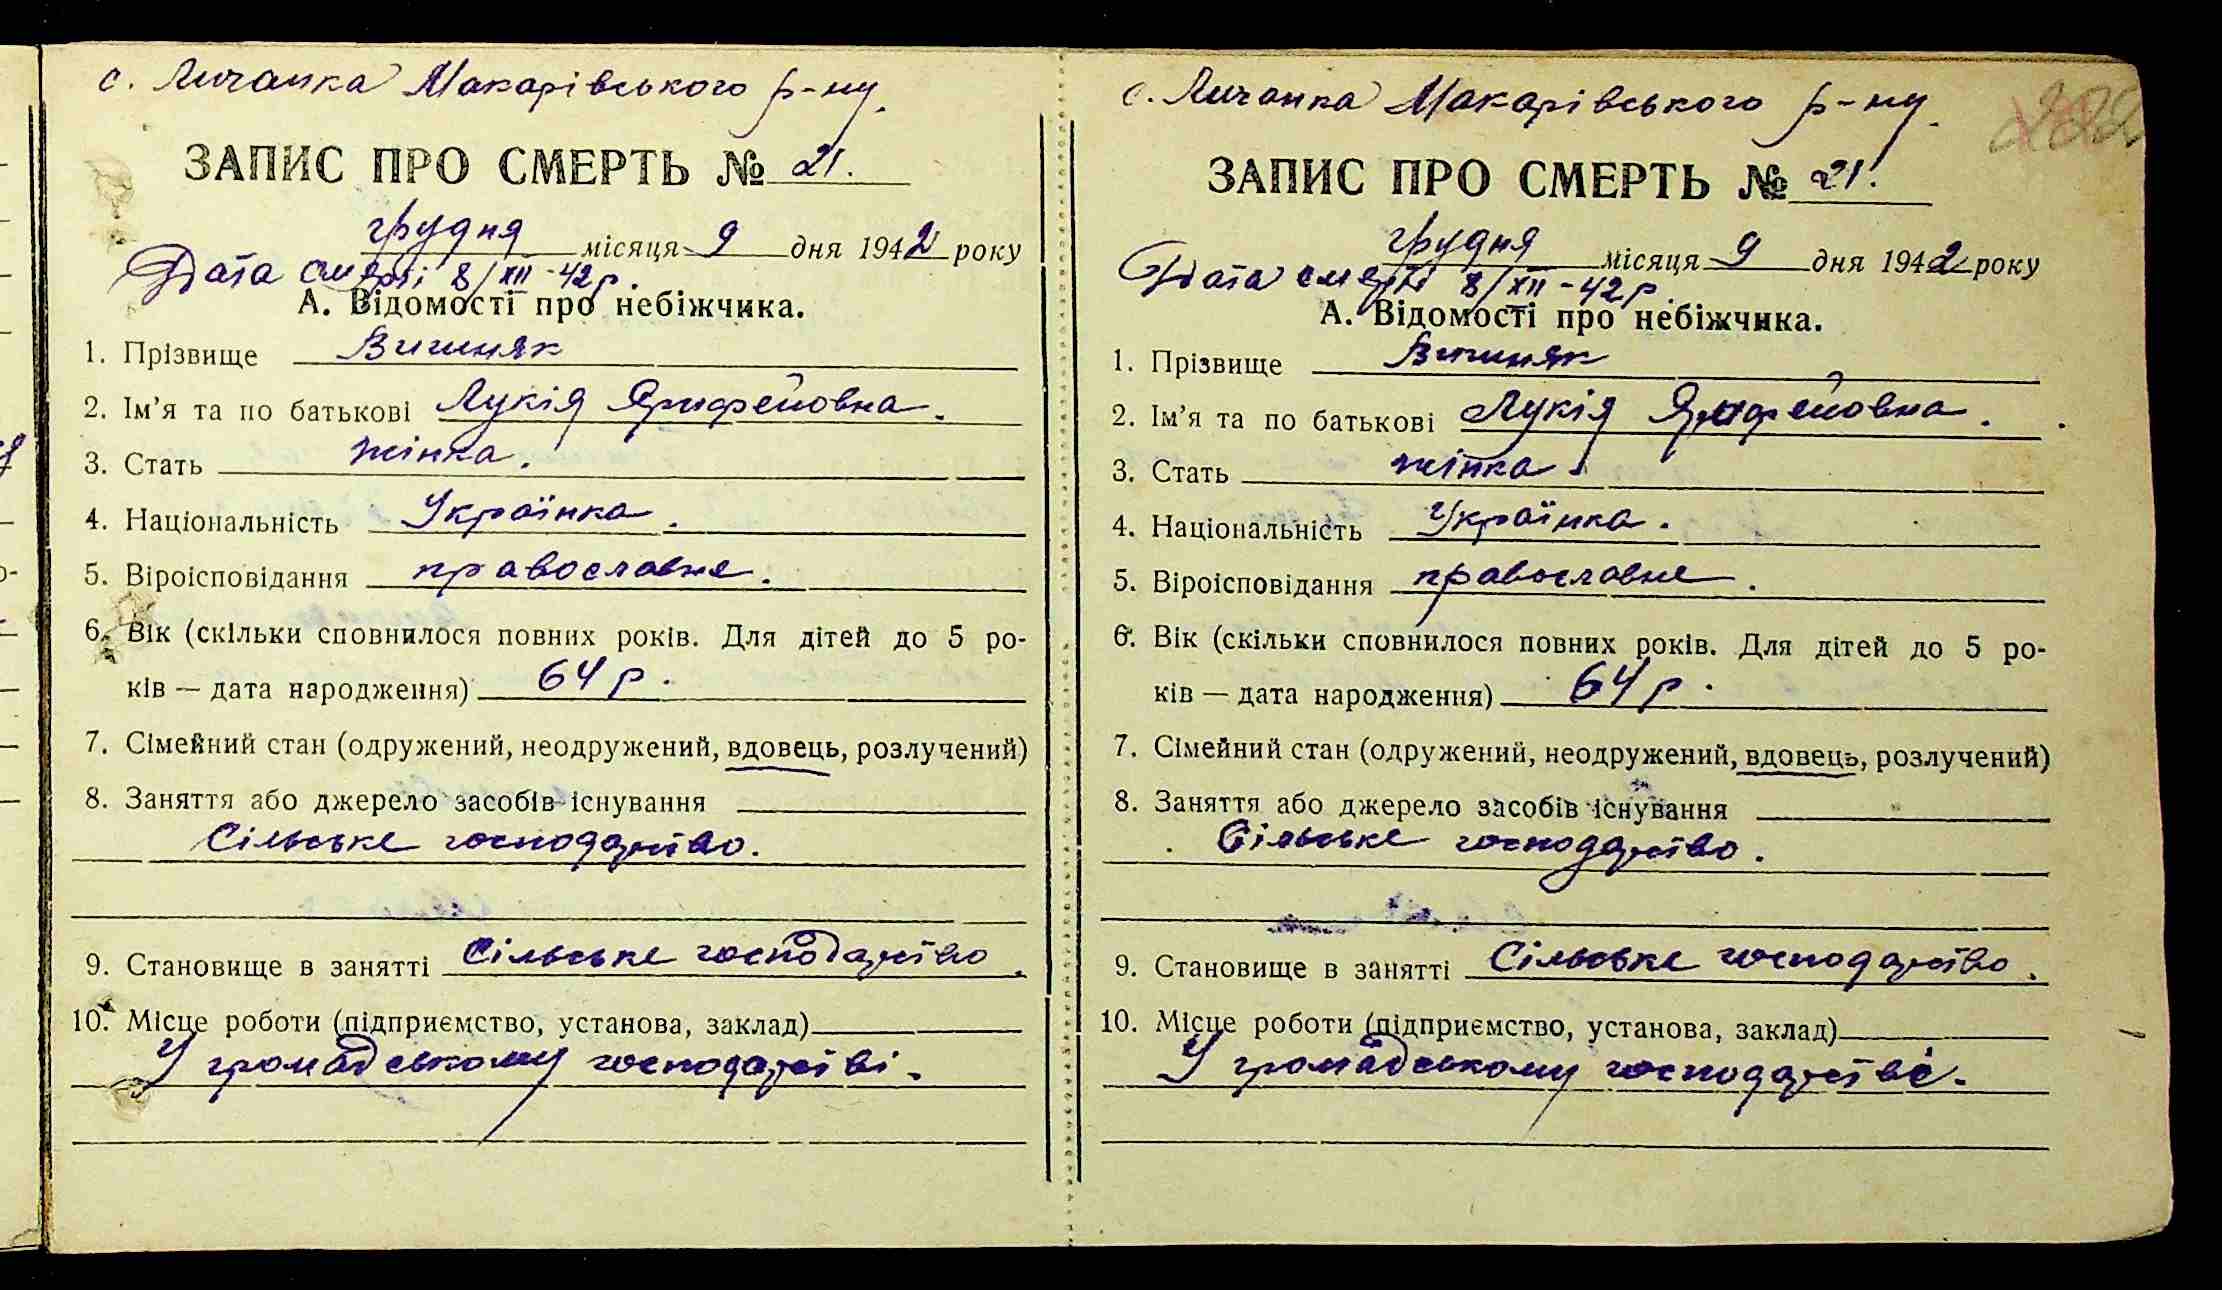 с. Личанка Макарівського р-ну.
ЗАПИС ПРО СМЕРТЬ № 21.
грудня місяця 9 дня 1942 року
Дата смерті 8/XII-42р.
А. Відомості про небіжчика.
1. Прізвище Вишняк
2. Ім'я та по батькові Лукія
3. Стать жінка.
4. Національність Українка.
5. Віроісповідання православне.
6. Вік (скільки сповнилося повних років. Для дітей до 5 ро-
ків — дата народження) 64 р.
7. Сімейний стан (одружений, неодружений, вдовець, розлучений)
8. Заняття або джерело засобів існування
Сільське господарство.
9. Становище в занятті Сільське господарство.
10. Місце роботи (підприємство, установа, заклад)
У громадському господарстві.
с. Личанка Макарівського р-ну.
ЗАПИС ПРО СМЕРТЬ № 21.
грудня місяця 9 дня 1942 року
Дата смерті 8/XII-42р.
А. Відомості про небіжчика.
1. Прізвище Вишняк
2. Ім'я та по батькові Лукія
3. Стать жінка.
4. Національність Українка.
5. Віроісповідання православне.
6. Вік (скільки сповнилося повних років. Для дітей до 5 ро-
ків — дата народження) 64 р.
7. Сімейний стан (одружений, неодружений, вдовець, розлучений)
8. Заняття або джерело засобів існування
Сільське господарство.
9. Становище в занятті Сільське господарство.
10. Місце роботи (підприємство, установа, заклад)
У громадському господарстві.